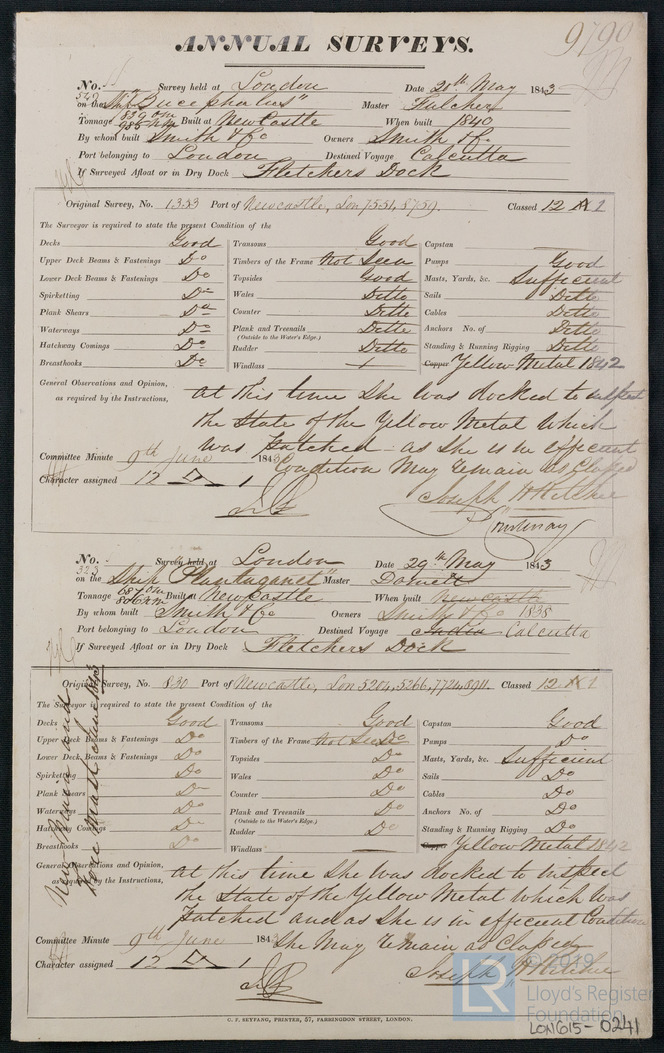 9790
ANNUAL SURVEYS.
No. 529 Survey held at London Date 20th May 1843
on the Ship "Bucephalus" Master Fulcher
Tonnage 839 om 985 nm Built at NewCastle When built 1840
By whom built Smith & Co Owners Smith & Co
Port belonging to London Destined Voyage Calcutta
If Surveyed Afloat or in Dry Dock Fletchers Dock
Original Survey, No. 1333 Port of Newcastle, Lon 7551, 8759. Classed 12 A 1
The Surveyor is required to state the present Condition of the
Decks Good Transoms Good Capstan
Upper Deck Beams & Fastenings Do Timbers of the Frame Not Seen Pumps Good
Lower Deck Beams & Fastenings Do Topsides Good Masts, Yards, &c. Sufficient
Spirketting Do Wales Ditto Sails Ditto
Plank Shears Do Counter Ditto Cables Ditto
Waterways Do Plank and Treenails Ditto Anchors No. of Ditto
(Outside to the Water's Edge.)
Hatchway Comings Do Rudder Ditto Standing & Running Rigging Ditto
Breasthooks Do Windlass Copper Yellow Metal 1842
General Observations and Opinion, At this time She was docked to inspect
as required by the Instructions, the State of the Yellow Metal Which
was Patched - as She is in efficient
Committee Minute 9th June 1843 Condition May remain as Classed
Character assigned 12 A 1 Joseph H Ritchie
No. 323 Survey held at London Date 29th May 1843
on the Ship Plantaganet" Master Domett
Tonnage 687 om 806 nm Built at NewCastle When built Newcastle
By whom built Smith & Co Owners Smith & Co 1838
Port belonging to London Destined Voyage India Calcutta
If Surveyed Afloat or in Dry Dock Fletchers Dock
Original Survey, No. 830 Port of Newcastle, Lon 5204, 5266, 7724, 8911. Classed 12 A 1
The Surveyor is required to state the present Condition of the
Decks Good Transoms Good Capstan Good
Upper Deck Beams & Fastenings Do Timbers of the Frame Not Seen Do Pumps Do
Lower Deck Beams & Fastenings Do Topsides Do Masts, Yards, &c. Sufficient
Spirketting Do Wales Do Sails Do
Plank Shears Do Counter Do Cables Do
Waterways Do Plank and Treenails Do Anchors No. of Do
(Outside to the Water's Edge.)
Hatchway Comings Do Rudder Do Standing & Running Rigging Do
Breasthooks Do Windlass Copper Yellow Metal 1842
New Main and
Fore Mast June 1843
General Observations and Opinion, At this time She was docked to inspect
as required by the Instructions, the State of the Yellow Metal which was
Patched and as She is in efficient Condition
Committee Minute 9th June 1843 She May remain as Classed
Character assigned 12 A 1 Joseph H Ritchie
C. F. SEYFANG, PRINTER, 57, FARRINGDON STREET, LONDON.
LR
© 2019
Lloyd's Register
Foundation
LON615-0241